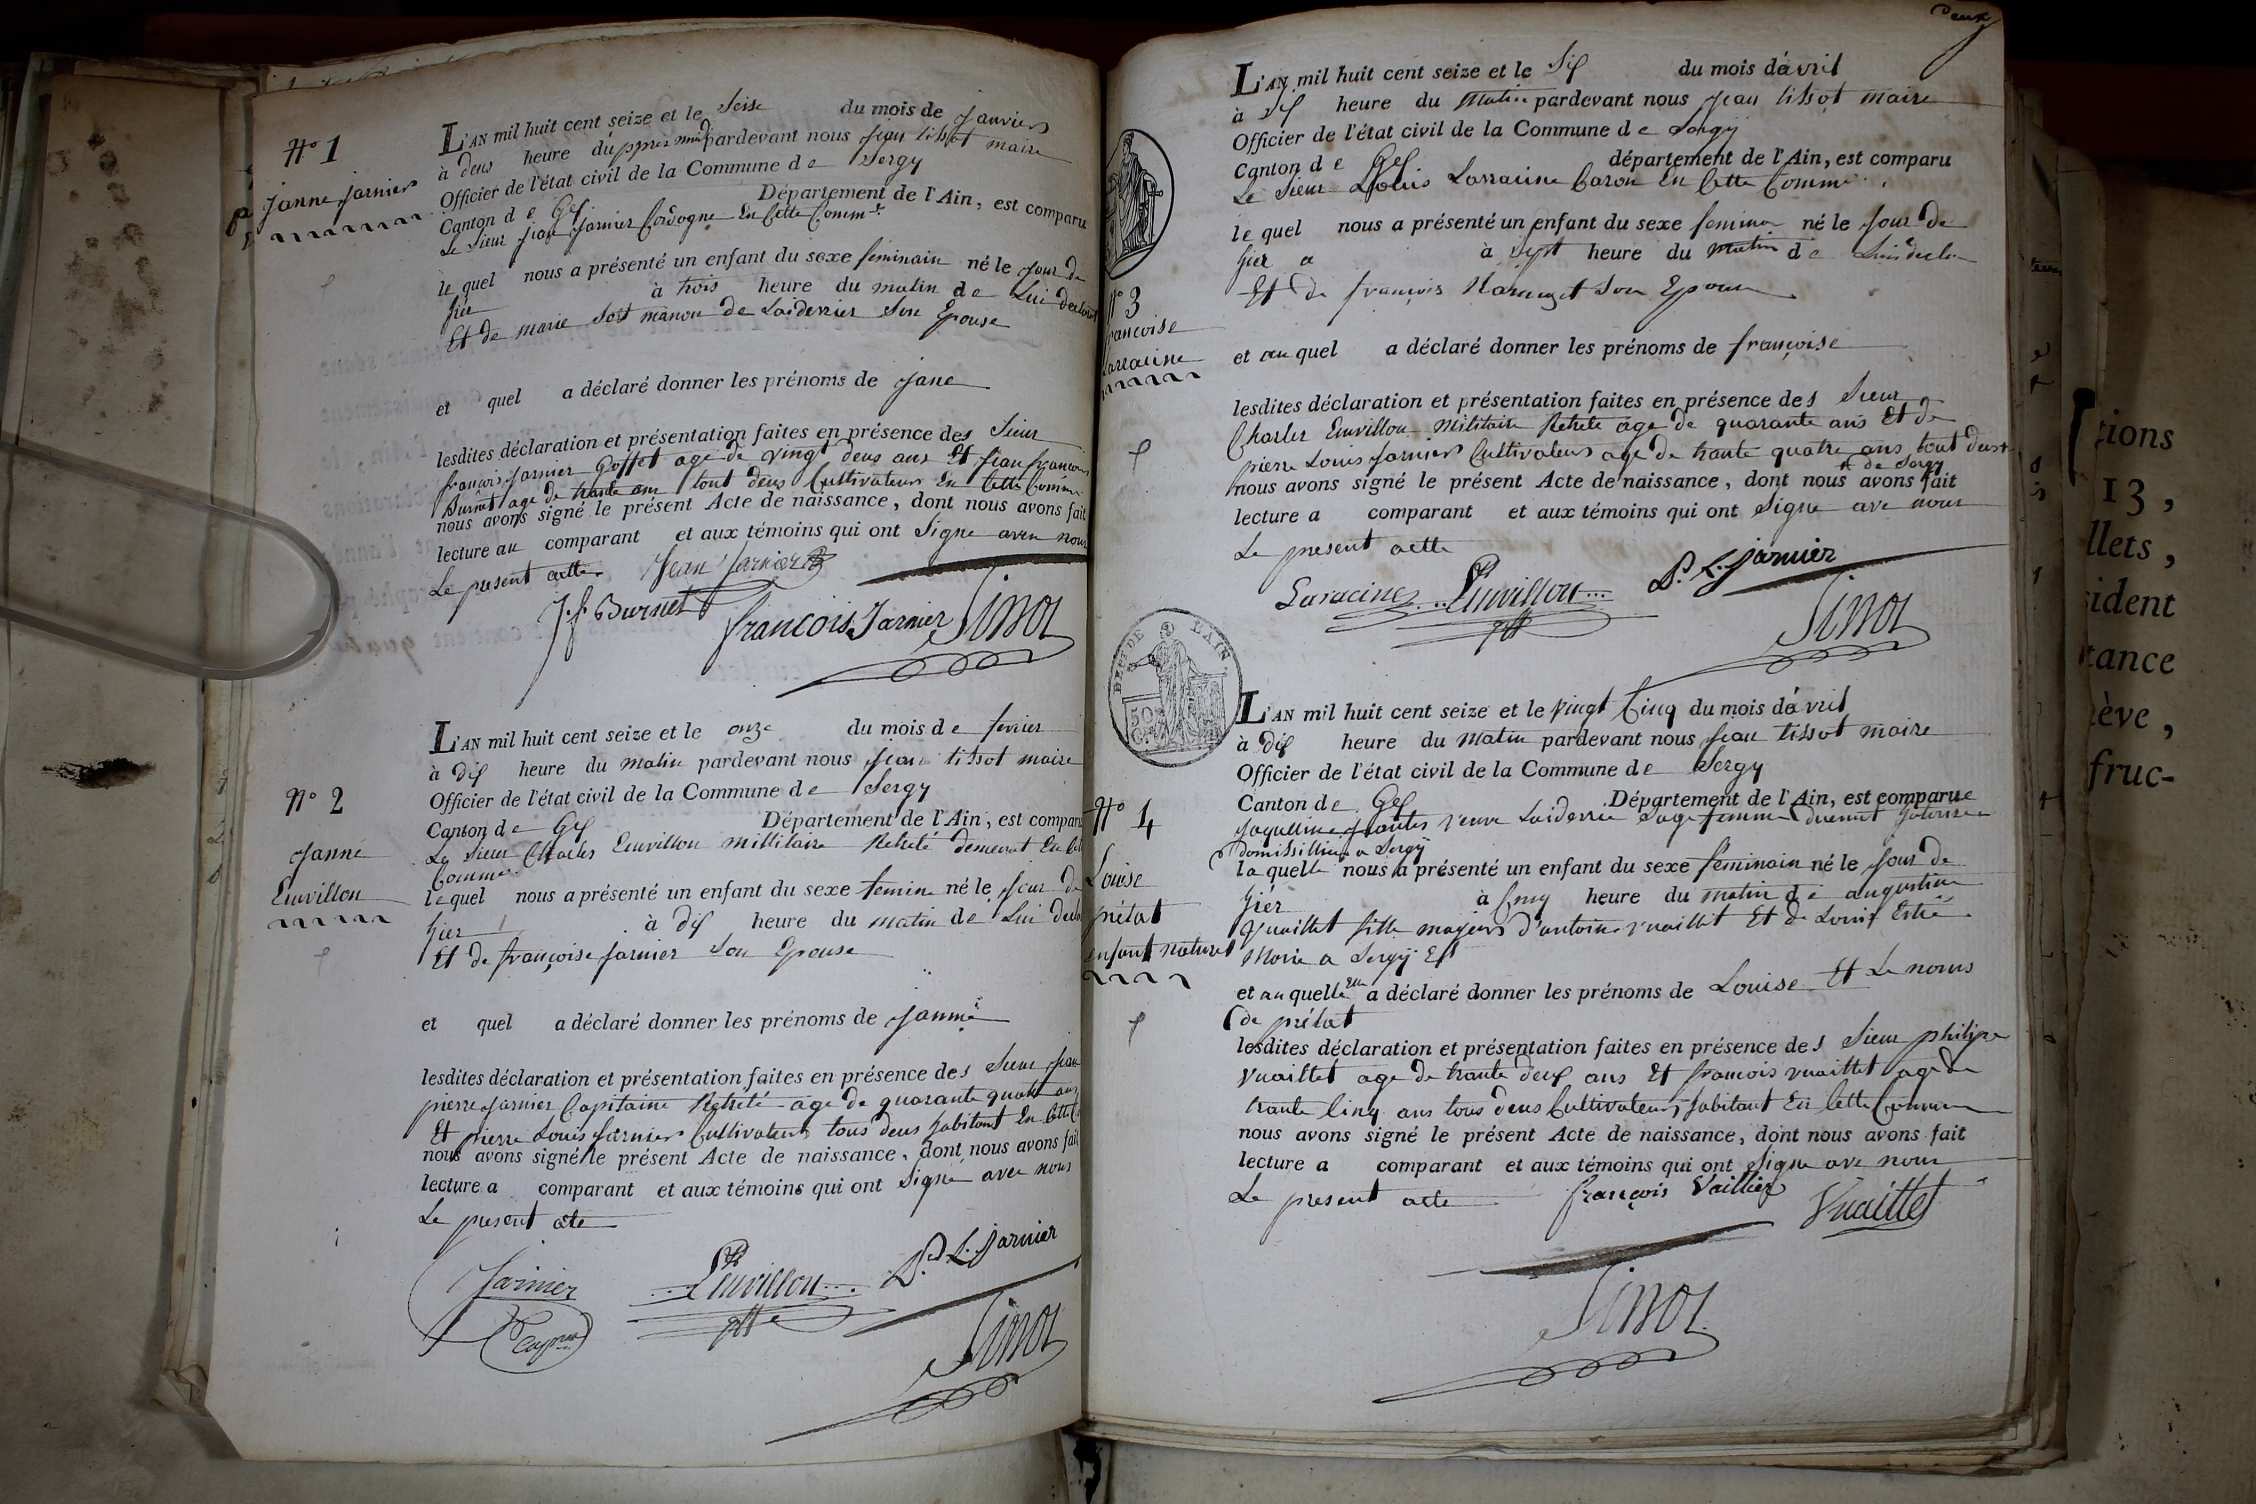 N° 1
Janne Jarnier
L'AN mil huit cent seize et le Seise du mois de Janvier
à deus heure du apres midi pardevant nous Jean tissot maire
Officier de l'état civil de la Commune de Sergy
Canton de Gex Département de l'Ain, est comparu
Le Sieur Jean Jarnier Cordogne En Cette Comm.
lequel nous a présenté un enfant du sexe feminain né le Jour de
hier à trois heure du matin de Lui declarant
Et de marie de Laiderrier Son Epouse
et quel a déclaré donner les prénoms de Jane
lesdites déclaration et présentation faites en présence des Sieur
françois Jarnier Goffet age de vingt deus ans Et Jean francois
Burnet age de trante ans tout deus Cultivateur En Cette Comm
nous avons signé le présent Acte de naissance, dont nous avons fait
lecture au comparant et aux témoins qui ont Signe avec nous
Le present acte. Jean Jarnier
J. f. Burnet françois Jarnier Tissot
N° 2
Janne
Emvillon
L'AN mil huit cent seize et le onze du mois de fevrier
à dix heure du matin pardevant nous Jean tissot maire
Officier de l'état civil de la Commune de Sergy
Canton de Gex Département de l'Ain, est comparu
Le Sieur Charles Emvillon Millitaire Retreté demeurat En Cet
Comme
lequel nous a présenté un enfant du sexe femine né le Jour de
hier à dix heure du matin de Lui decla
Et de françoise Jarnier Son Epouse
et quel a déclaré donner les prénoms de Janne
lesdites déclaration et présentation faites en présence des Sieur Jean
pierre Jarnier Capitaine Retreté age de quarante quatre ans
Et pierre Louis Jarnier Cultivateur tous deus habitant En Cette C
nous avons signé le présent Acte de naissance, dont nous avons fait
lecture a comparant et aux témoins qui ont Signé avec nous
Le present acte
Jarnier Emvillon P. L. Jarnier
Tissot
Deux
L'AN mil huit cent seize et le Six du mois d'avril
à dix heure du Matin pardevant nous Jean tissot maire
Officier de l'état civil de la Commune de Sergÿ
Canton de Gex département de l'Ain, est comparu
Le Sieur Louis Larracine Caron En Cette Comme
lequel nous a présenté un enfant du sexe feminin né le Jour de
hier a à Sept heure du matin de Lui declar
Et de françois Son Epouse
N° 3
françoise
Larracine
et auquel a déclaré donner les prénoms de françoise
lesdites déclaration et présentation faites en présence des Sieur
Charles Emvillon Militaire Retreté age de quarante ans Et de
pierre Louis Jarnier Cultivateur age de trante quatre ans tout deus
de Sergy
nous avons signé le présent Acte de naissance, dont nous avons fait
lecture a comparant et aux témoins qui ont Signe ave nous
Le present acte
Laracine Emvillon P. L. Jarnier
Tissot
DEPT DE L'AIN
50
L'AN mil huit cent seize et le vingt Cinq du mois d'avril
à dix heure du Matin pardevant nous Jean tissot maire
Officier de l'état civil de la Commune de Sergy
Canton de Gex Département de l'Ain, est comparue
Jaqueline veuve Laiderrier Sage femme
domissilliée a Sergy
laquelle nous a présenté un enfant du sexe feminain né le Jour de
hiér à Cinq heure du matin de augustine
Vuaillet fille majeur d'antoine vuaillet Et de Louise
Morie a Sergÿ
N° 4
Louise
prélat
enfant naturel
et auquelle elle a déclaré donner les prénoms de Louise Et Le noms
de prélat
lesdites déclaration et présentation faites en présence des Sieur philipe
Vuaillet age de trante deux ans Et francois vuaillet age de
trante Cinq ans tous deus Cultivateur habitant En Cette Commune
nous avons signé le présent Acte de naissance, dont nous avons fait
lecture a comparant et aux témoins qui ont Signe ave nous
Le present acte françois Vaillier Vuaillet
Tissot
tions
13,
llets,
sident
tance
ève,
fruc-